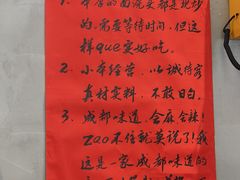 1. 本店的面浇头都是现炒
的.需要等待时间.但这
样que实好吃.
2. 小本经营.以诚待客
真材实料.不敢日白.
3. 成都味道.会麻会辣!
zao不住就莫说了!我
这是一家成都味道的